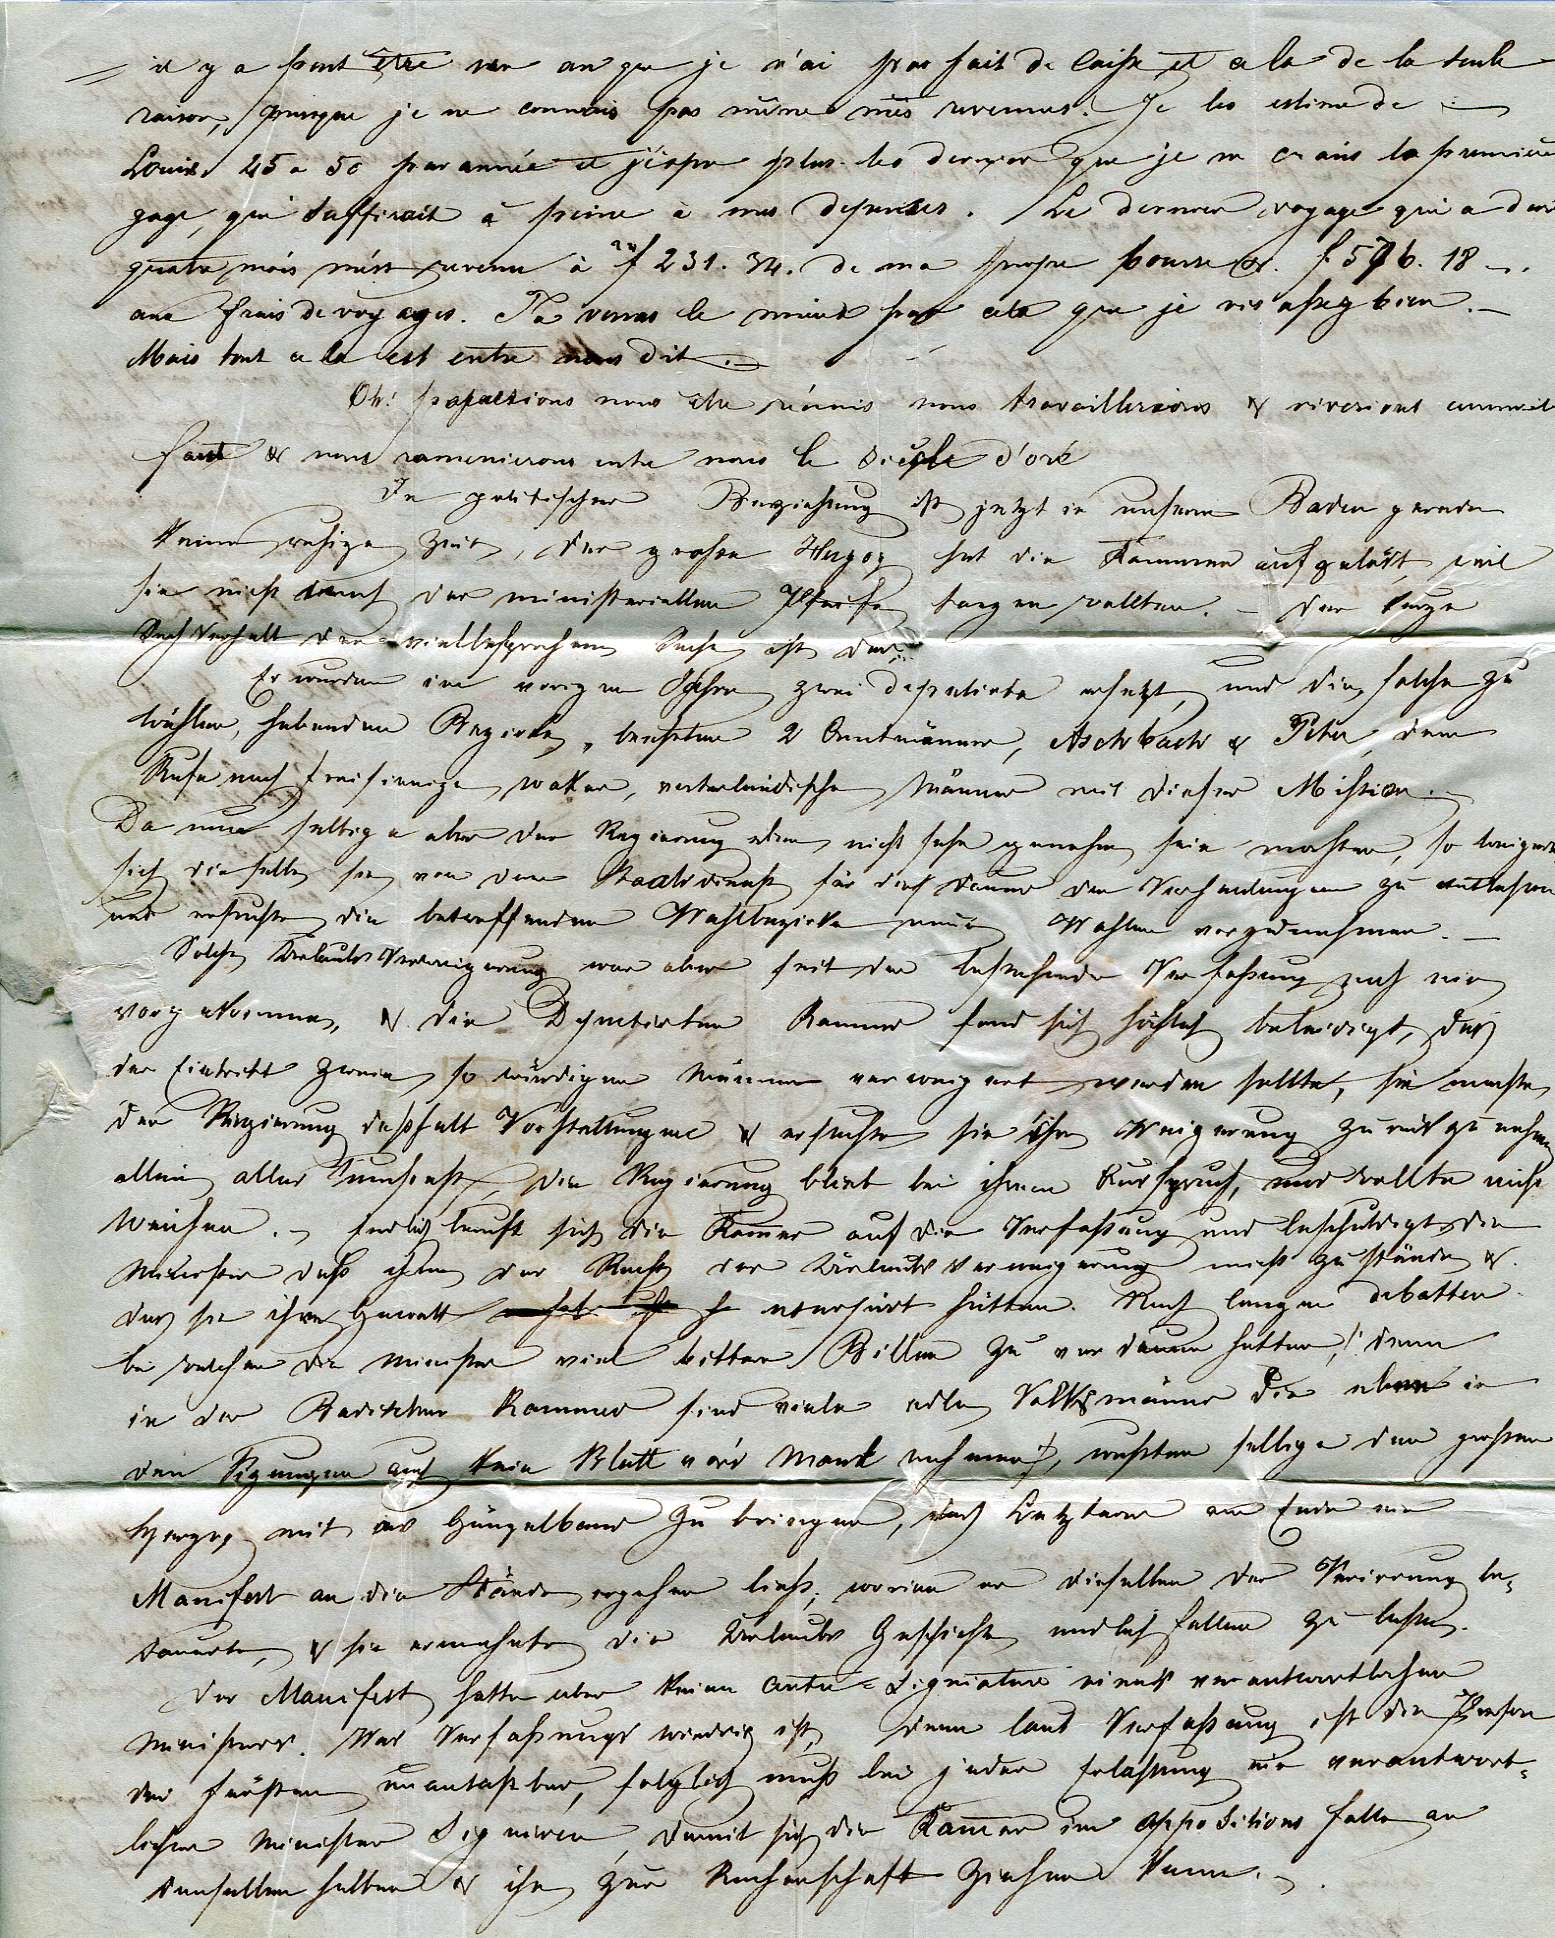 il y a peut être un an que je n'ai pas fait de caisse et cela de la seule
raison, puisque je ne connais pas même mes revenus. Je les estime de
Louis. 45 a 50 par année et j'éspere plus les dernier que je ne crains la première
gage, qui suffirait à peine à mes depenses. Le dernier voyage qui a duré
quatre mois m'est revenu à f 231. 34. de ma propre bourse & f. 576. 18
aux frais de voyages. Tu verras le mieux par cela que je vis assez bien.
Mais tout cela est entre nous dit.
Oh! pussions nous être réunis nous travaillerions & vivrions comme il
faut & nous ramenierons entre nous le siècle d'oré
In politischer Beziehung ist jetzt in unserm Baden gerade
keine ruhige Zeit, der große Herzog hat die Kammer aufgelöst, weil
sie nicht nach der ministeriellen Pfeife tanzen wollten. – Der kurze
Sach Verhalt der vielbesprochenen Sache ist der:
Es wurden im vorigen Jahre zwei Deputierte ersetzt, und die, solche zu
wählen, habenden Bezirke, betrauten 2 Amtmänner, Aschbach & Peter, dem
Rufe nach freisinnige, wakere, vaterländische Männer mit dieser Mission.
Da nun selbige aber der Regierung eben nicht sehr genehm sein mochten, so weigerte
sich dieselbe sie von dem Staatsdienst für die Dauer der Verhandlungen zu entlassen
und ersuchte die betreffenden Wahlbezirke neue Wahlen vorzunehmen. –
Solche Urlaubs Verweigerung war aber seit der bestehenden Verfaßung noch nie
vorgekommen, & die Deputierten Kammer fand sich höchlich beleidigt, daß
der Eintritt zweier so würdigen Männer verweigert werden sollte, sie machte
der Regierung deßhalb Vorstellungen & ersuchte sie ihre Weigerung zurückzunehmen
allein alles umsonst, die Regierung blieb bei ihrem Ausspruch, und wollte nicht
weichen. – Endlich beruft sich die Kammer auf die Verfaßung und beschuldigt die
Minister daß ihnen das Recht der Urlaubs Verweigerung nicht zustände &
daß sie ihre Gewalt usurpirt hätten. Nach langen Debatten
bei welchen die Minister viel bittere Pillen zu verdauen hatten, (denn
in der Badischen Kammer sind viele edle Volksmänner die eben in
den Sitzungen auch kein Blatt vor's Maul nehmen), wußten selbige den großen
Herzog mit ans Gängelband zu bringen, daß Letzterer am Ende ein
Manifest an die Stände ergehen ließ, worin er dieselben der Verirrung be-
dauerte, & sie ermahnte die Urlaubs Geschichte endlich fallen zu lassen.
Das Manifest hatte aber keine Contre-Signiatur eines verantwortlichen
Ministers. Was Verfaßungs wiedrig ist, denn laut Verfaßung ist die Person
des Fürsten unantastbar, folglich muß bei jeder Erlaßung ein verantwort-
licher Minister signiren, damit sich die Kammer im Oppositions Falle an
denselben halten & ihn zur Rechenschaft ziehen kann. –